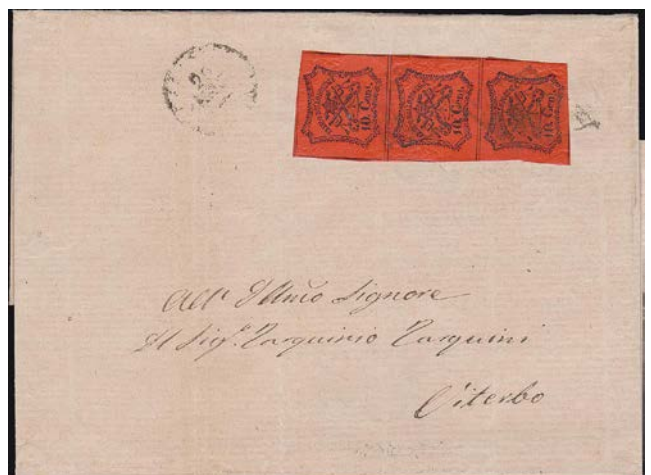 10. Cent. 10. Cent. 10. Cent.
All' Illmo Signore
Il Sigr. Tarquinio Tarquini
Viterbo